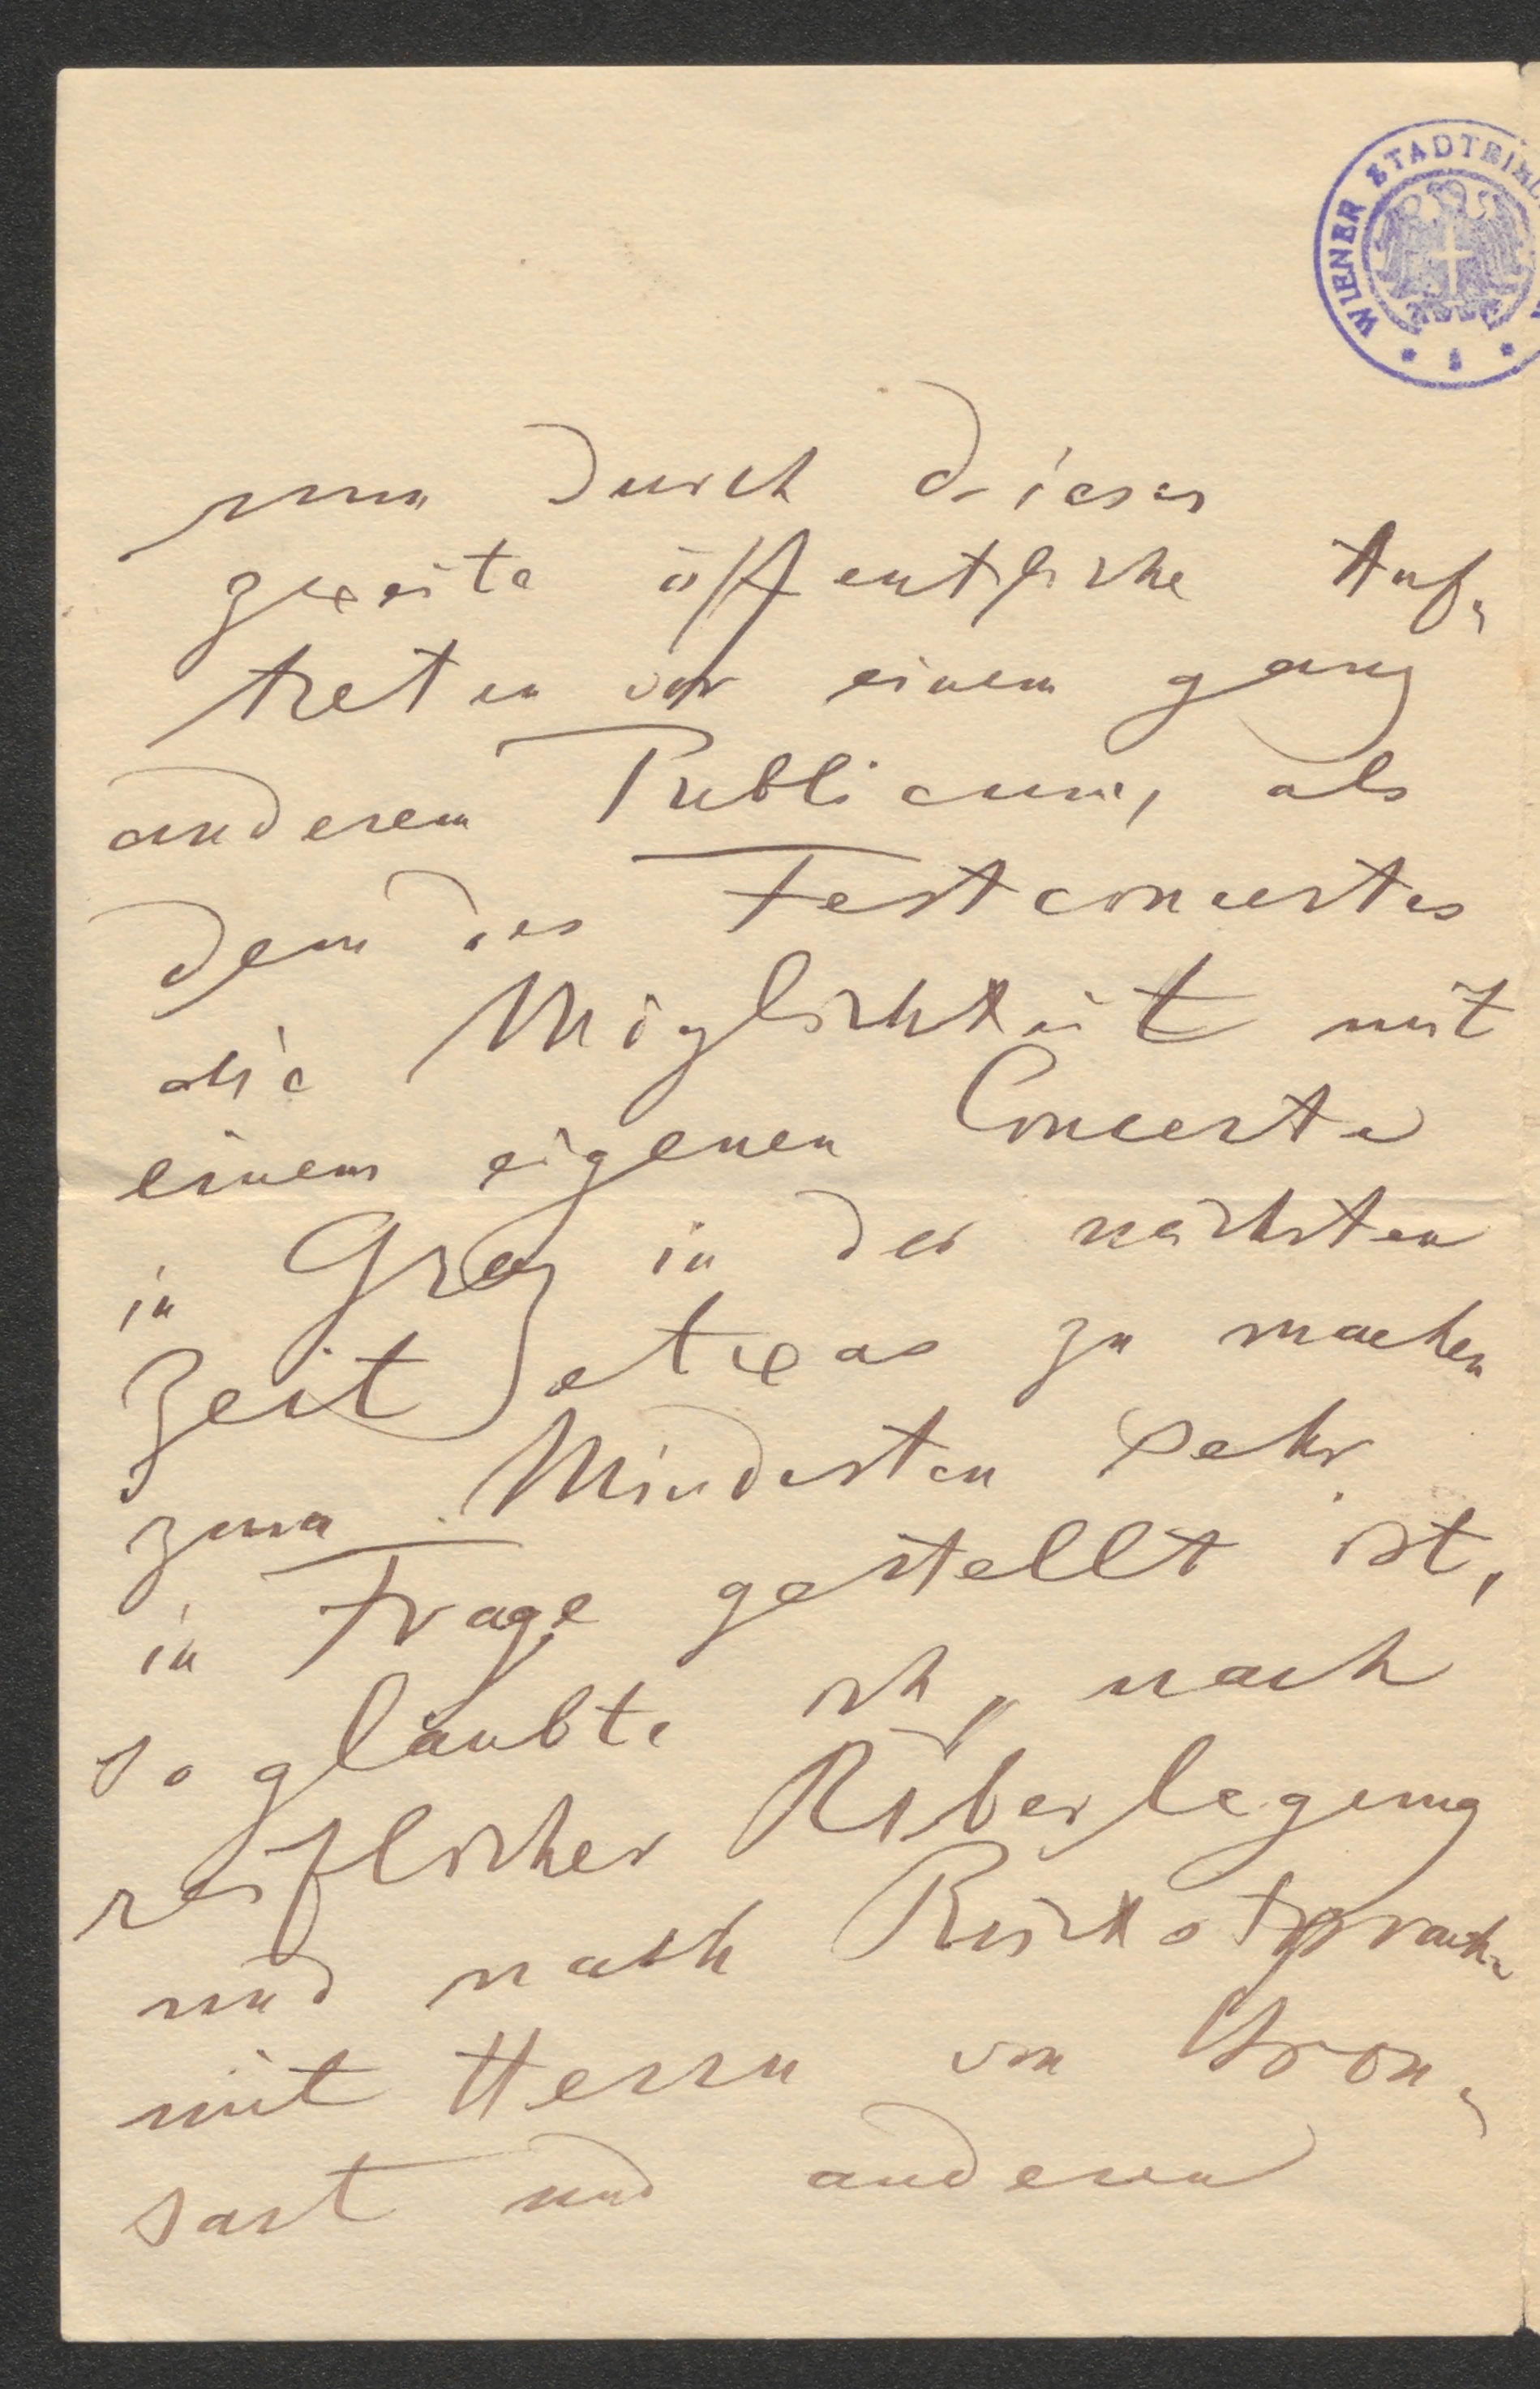 WIENER STADTBI
nun durch dieses
zweite öffentliche Auf-
treten vor einem ganz
anderem Publicum, als
dem des Festconcertes
die Möglichkeit mit
einem eigenen Concerte
in Graz in der nächsten
Zeit etwas zu machen
zum Mindesten sehr
in Frage gestellt ist,
so glaubte ich, nach
reiflicher Überlegung
und nach Rücksprache
mit Herrn von Bron-
sart und anderen